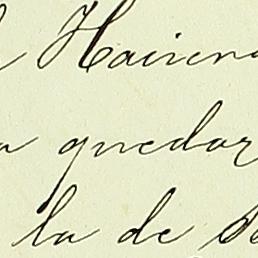 Hacien
quedar
la de